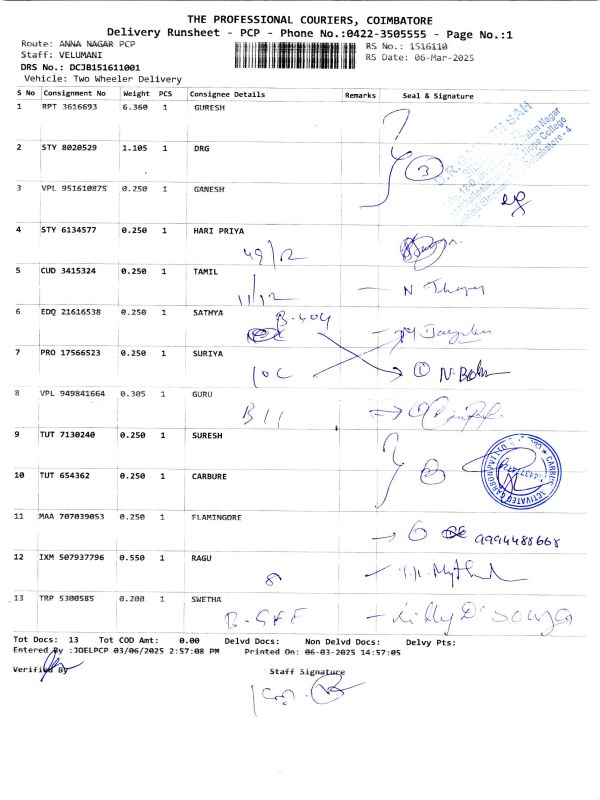 THE PROFESSIONAL COURIERS, COIMBATORE
Delivery Runsheet - PCP - Phone No.:0422-3505555 - Page No.:1
Route: ANNA NAGAR PCP
RS No.: 1516110
Staff: VELUMANI
RS Date: 06-Mar-2025
DRS No.: DCJB151611001
Vehicle: Two Wheeler Delivery
S No Consignment No Weight PCS Consignee Details Remarks Seal & Signature
1 RPT 3616693 6.360 1 GURESH
2 STY 8020529 1.105 1 DRG
3
3 VPL 951610875 0.250 1 GANESH
4 STY 6134577 0.250 1 HARI PRIYA
49/12
5 CUD 3415324 0.250 1 TAMIL
11/12
6 EDQ 21616538 0.250 1 SATHYA
B-404
7 PRO 17566523 0.250 1 SURIYA
10C
8 VPL 949841664 0.305 1 GURU
B11
9 TUT 7130240 0.250 1 SURESH
10 TUT 654362 0.250 1 CARBURE
11 MAA 707039053 0.250 1 FLAMINGORE
9994488668
12 IXM 507937796 0.550 1 RAGU
8
13 TRP 5300585 0.200 1 SWETHA
Tot Docs: 13 Tot COD Amt: 0.00 Delvd Docs: Non Delvd Docs: Delvy Pts:
Entered By :JOELPCP 03/06/2025 2:57:08 PM Printed On: 06-03-2025 14:57:05
Verified By
Staff Signature